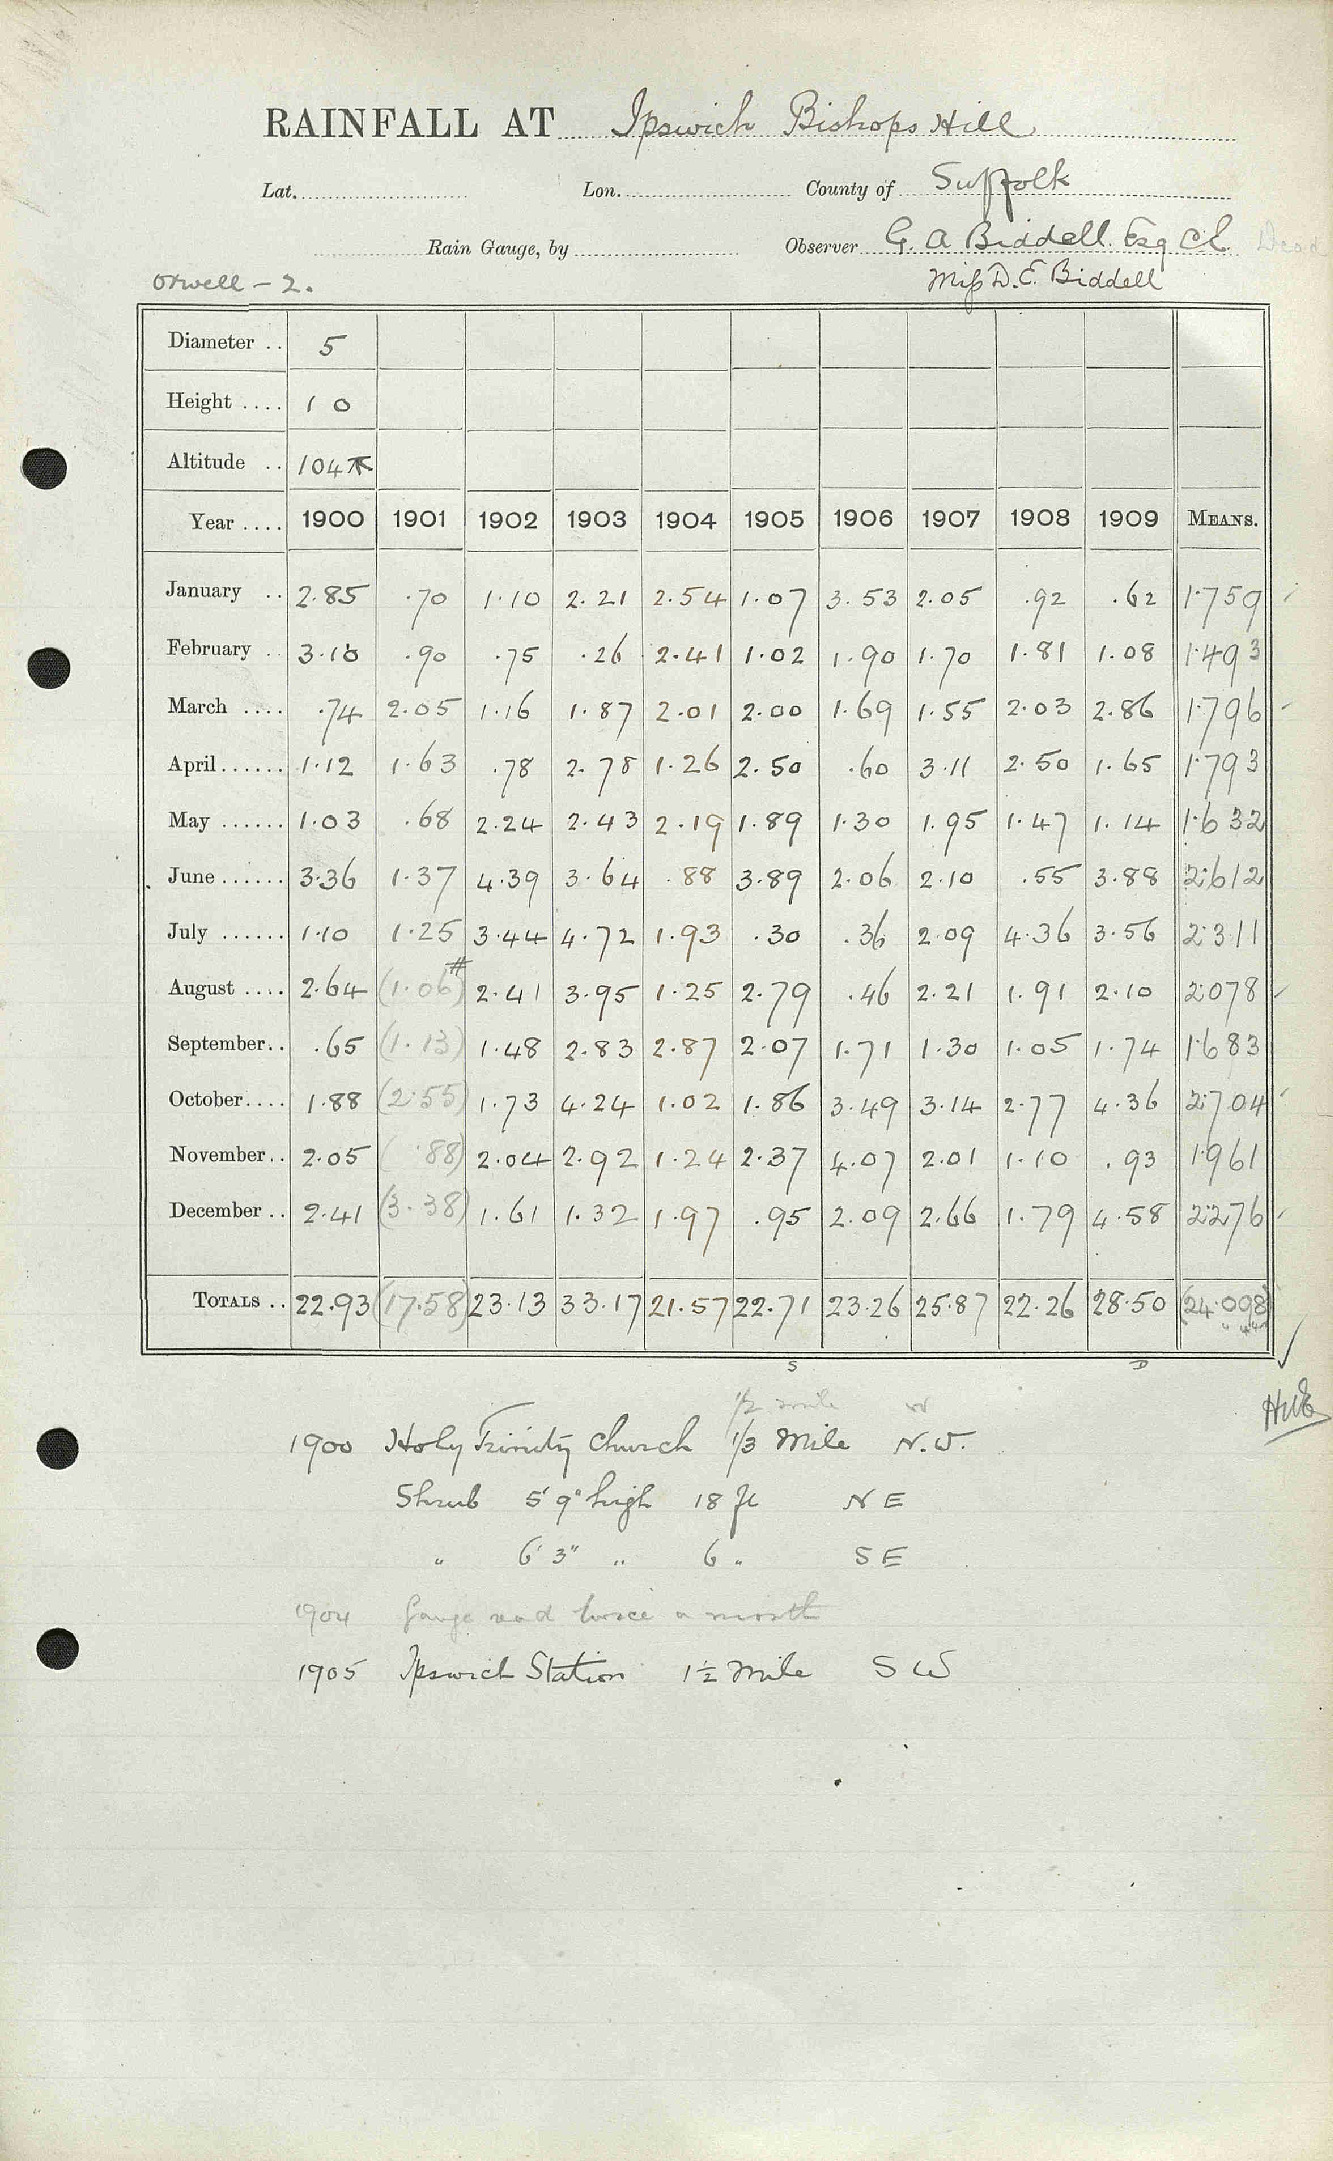 RAINFALL AT Ipswich Bishops Hill
Lat. Lon. County of Suffolk
Rain Gauge, by Observer G. A Biddell. Esq C.E. Dead
Orwell - 2. Miss D. E. Biddell
Diameter .. 5
Height .... 10
Altitude .. 104
Year .... 1900 1901 1902 1903 1904 1905 1906 1907 1908 1909 MEANS.
January .. 2.85 .70 1.10 2.21 2.54 1.07 3.53 2.05 .92 .62 1.759
February .. 3.10 .90 .75 .26 2.41 1.02 1.90 1.70 1.81 1.08 1.493
March .... .74 2.05 1.16 1.87 2.01 2.00 1.69 1.55 2.03 2.86 1.796
April...... 1.12 1.63 .78 2.78 1.26 2.50 .60 3.11 2.50 1.65 1.793
May ...... 1.03 .68 2.24 2.43 2.19 1.89 1.30 1.95 1.47 1.14 1.632
June...... 3.36 1.37 4.39 3.64 .88 3.89 2.06 2.10 .55 3.88 2.612
July ...... 1.10 1.25 3.44 4.72 1.93 .30 .36 2.09 4.36 3.56 2.311
August .... 2.64 (1.06)# 2.41 3.95 1.25 2.79 .46 2.21 1.91 2.10 2.078
September.. .65 (1.13) 1.48 2.83 2.87 2.07 1.71 1.30 1.05 1.74 1.683
October.... 1.88 (2.55) 1.73 4.24 1.02 1.86 3.49 3.14 2.77 4.36 2.704
November.. 2.05 (.88) 2.04 2.92 1.24 2.37 4.07 2.01 1.10 .93 1.961
December .. 2.41 (3.38) 1.61 1.32 1.97 .95 2.09 2.66 1.79 4.58 2.276
TOTALS .. 22.93 (17.58) 23.13 33.17 21.57 22.71 23.26 25.87 22.26 28.50 (24.098)
S D
1/2 mile W
1900 Holy Trinity Church 1/3 Mile N.W.
Shrub 5' 9" high 18 ft NE
" 6' 3" " 6 " SE
1904 Gauge read twice a month
1905 Ipswich Station 1½ Mile SW